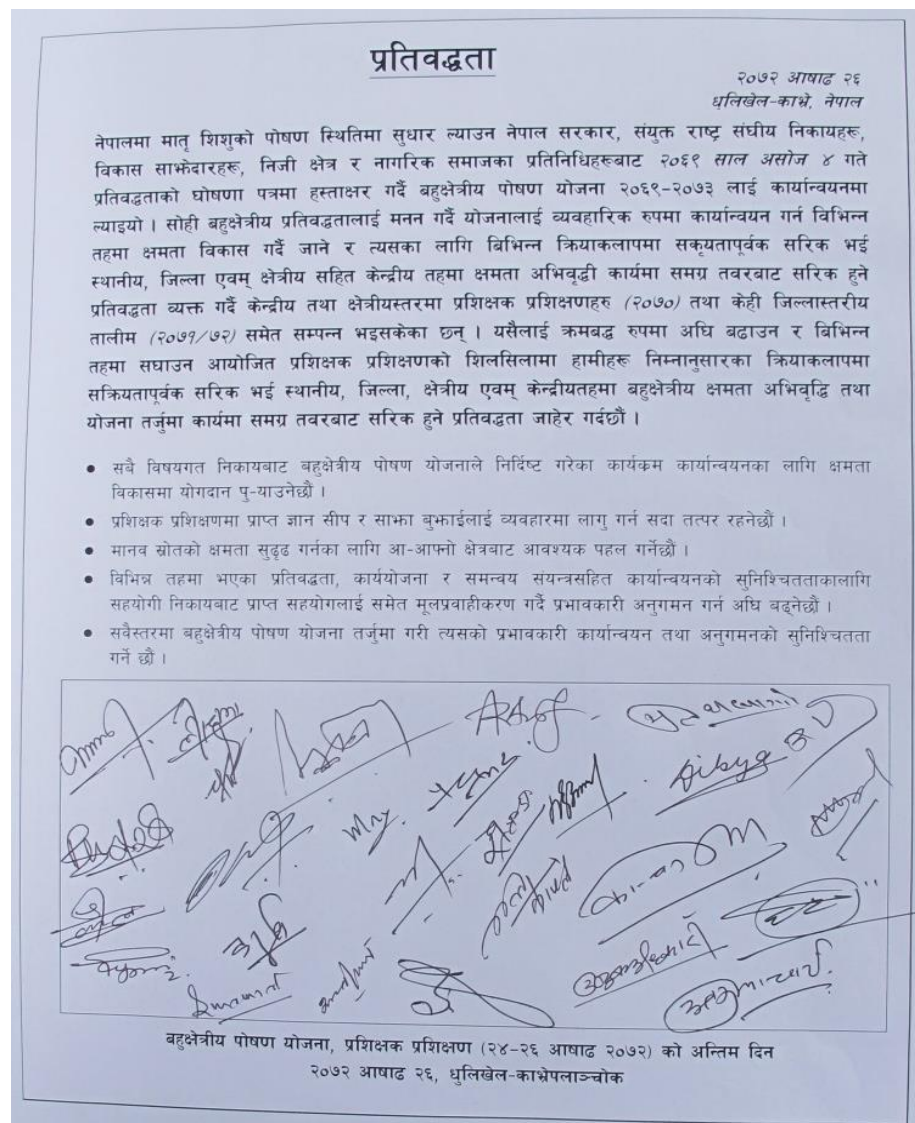 प्रतिवद्धता
२०७२ आषाढ २६
धुलिखेल-काभ्रे, नेपाल
नेपालमा मातृ शिशुको पोषण स्थितिमा सुधार ल्याउन नेपाल सरकार, संयुक्त राष्ट्र संघीय निकायहरू,
विकास साझेदारहरू, निजी क्षेत्र र नागरिक समाजका प्रतिनिधिहरूबाट २०६९ साल असोज ४ गते
प्रतिवद्धताको घोषणा पत्रमा हस्ताक्षर गर्दै बहुक्षेत्रीय पोषण योजना २०६९-२०७३ लाई कार्यान्वयनमा
ल्याइयो । सोही बहुक्षेत्रीय प्रतिवद्धतालाई मनन गर्दै योजनालाई व्यवहारिक रुपमा कार्यान्वयन गर्न विभिन्न
तहमा क्षमता विकास गर्दै जाने र त्यसका लागि बिभिन्न क्रियाकलापमा सकृयतापूर्वक सरिक भई
स्थानीय, जिल्ला एवम् क्षेत्रीय सहित केन्द्रीय तहमा क्षमता अभिवृद्धी कार्यमा समग्र तवरबाट सरिक हुने
प्रतिवद्धता व्यक्त गर्दै केन्द्रीय तथा क्षेत्रीयस्तरमा प्रशिक्षक प्रशिक्षणहरु (२०७०) तथा केही जिल्लास्तरीय
तालीम (२०७१/७२) समेत सम्पन्न भइसकेका छन् । यसैलाई क्रमबद्ध रुपमा अघि बढाउन र बिभिन्न
तहमा सघाउन आयोजित प्रशिक्षक प्रशिक्षणको शिलसिलामा हामीहरू निम्नानुसारका क्रियाकलापमा
सक्रियतापूर्वक सरिक भई स्थानीय, जिल्ला, क्षेत्रीय एवम् केन्द्रीयतहमा बहुक्षेत्रीय क्षमता अभिवृद्धि तथा
योजना तर्जुमा कार्यमा समग्र तवरबाट सरिक हुने प्रतिवद्धता जाहेर गर्दछौं ।
• सबै विषयगत निकायबाट बहुक्षेत्रीय पोषण योजनाले निर्दिष्ट गरेका कार्यक्रम कार्यान्वयनका लागि क्षमता
विकासमा योगदान पु-याउनेछौं ।
• प्रशिक्षक प्रशिक्षणमा प्राप्त ज्ञान सीप र साझा बुझाईलाई व्यवहारमा लागु गर्न सदा तत्पर रहनेछौं ।
• मानव स्रोतको क्षमता सुदृढ गर्नका लागि आ-आफ्नो क्षेत्रबाट आवश्यक पहल गर्नेछौं ।
• विभिन्न तहमा भएका प्रतिवद्धता, कार्ययोजना र समन्वय संयन्त्रसहित कार्यान्वयनको सुनिश्चितताकालागि
सहयोगी निकायबाट प्राप्त सहयोगलाई समेत मूलप्रवाहीकरण गर्दै प्रभावकारी अनुगमन गर्न अघि बढ्नेछौं ।
• सवैस्तरमा बहुक्षेत्रीय पोषण योजना तर्जुमा गरी त्यसको प्रभावकारी कार्यान्वयन तथा अनुगमनको सुनिश्चितता
गर्ने छौं ।
बहुक्षेत्रीय पोषण योजना, प्रशिक्षक प्रशिक्षण (२४-२६ आषाढ २०७२) को अन्तिम दिन
२०७२ आषाढ २६, धुलिखेल-काभ्रेपलाञ्चोक